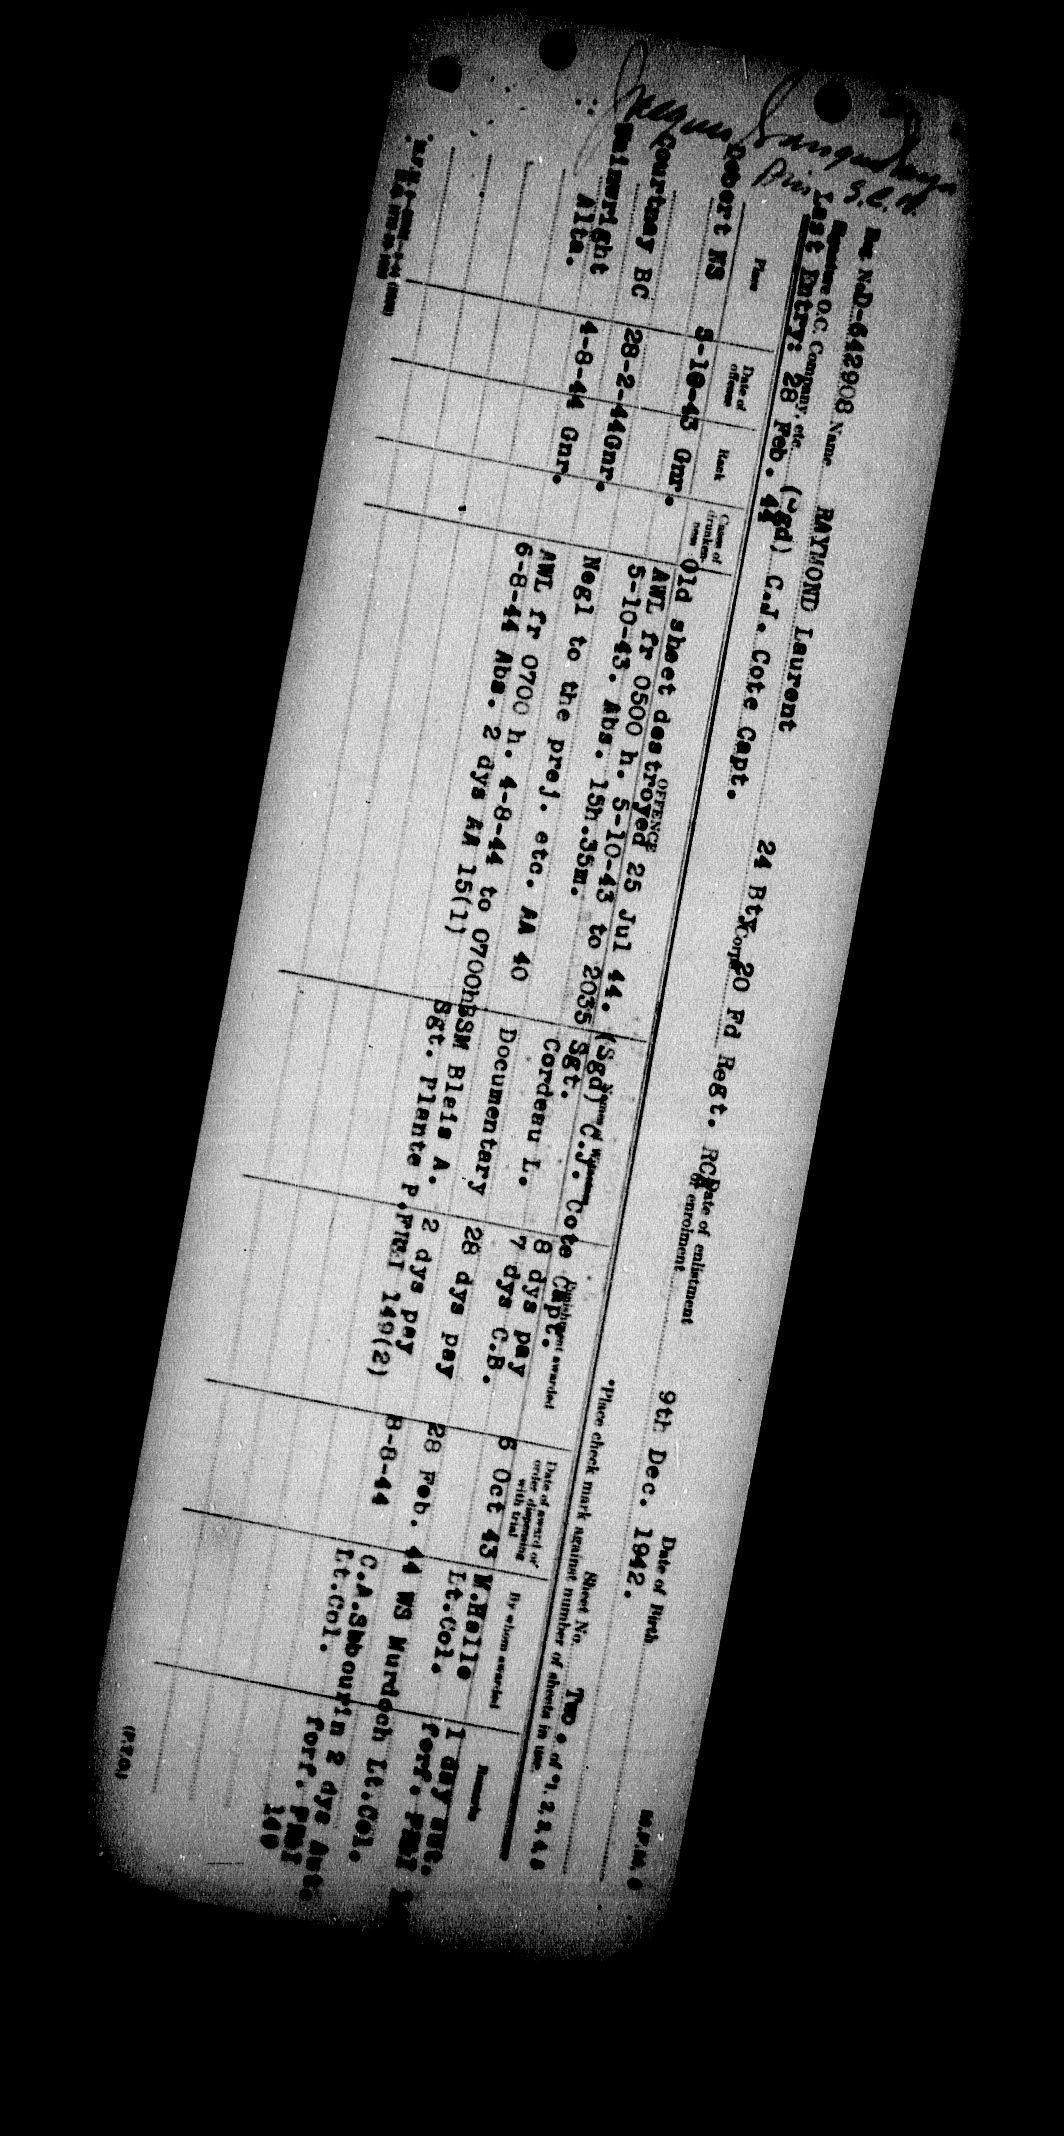 Div S.C.N.
Reg No D-642908 Name RAYMOND Laurent 24 Bty Corps 20 Fd Regt. RCA Date of enlistment or enrolment 9th Dec. 1942. Date of Birth
Signature O.C. Company, etc. (Sgd) C.J. Cote Capt. Sheet No. Two. of *1, 2, 3, 4, 5
Last Entry: 28 Feb. 44 *Place check mark against number of sheets in use.
Place Date of offence Rank Cases of drunkenness OFFENCE Names of Witnesses Punishment awarded Date of award or order dispensing with trial By whom awarded Remarks
Old sheet destroyed 25 Jul 44. (Sgd) C.J. Cote Capt.
Debert NS 5-10-43 Gnr. AWL fr 0500 h. 5-10-43 to 2035 Sgt. 8 dys pay 6 Oct 43 1 day aut.
5-10-43. Abs. 15h.35m. Cordeau L. 7 dys C.B. Lt.Col. forf.
Courtnay BC 28-2-44 Gnr. Negl to the prej. etc. AA 40 Documentary 28 dys pay 28 Feb. 44 WS Murdoch Lt.Col.
Wainwright 4-8-44 Gnr. AWL fr 0700 h. 4-8-44 to 0700h BSM Blais A. 2 dys pay 8-8-44 2 dys Aut.
Alta. 6-8-44 Abs. 2 dys AA 15(1) Sgt. Plante P. 149(2) Lt.Col. forf.
(P.T.O.)